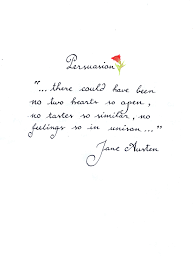 Persuasion
"... there could have been
no two hearts so open,
no tastes so similar, no
feelings so in unison..."
Jane Austen